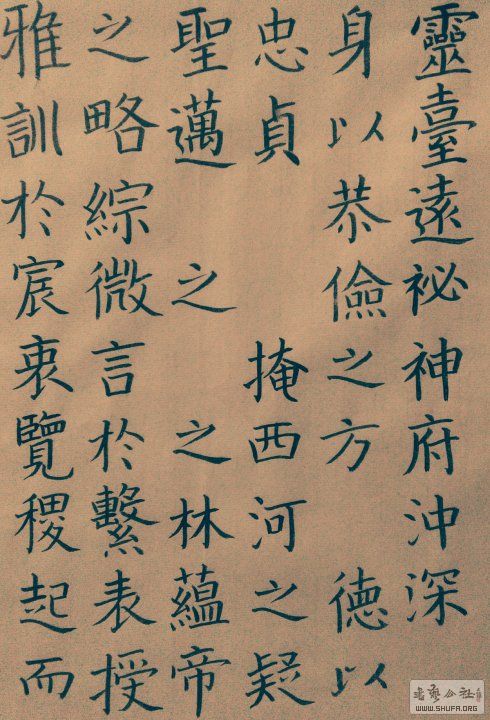 靈臺遠祕神府沖深
身以恭儉之方德以
忠貞掩西河之疑
聖邁之之林蘊帝
之略綜微言於繫表授
雅訓於宸衷覽稷起而
WWW.SHUFA.ORG